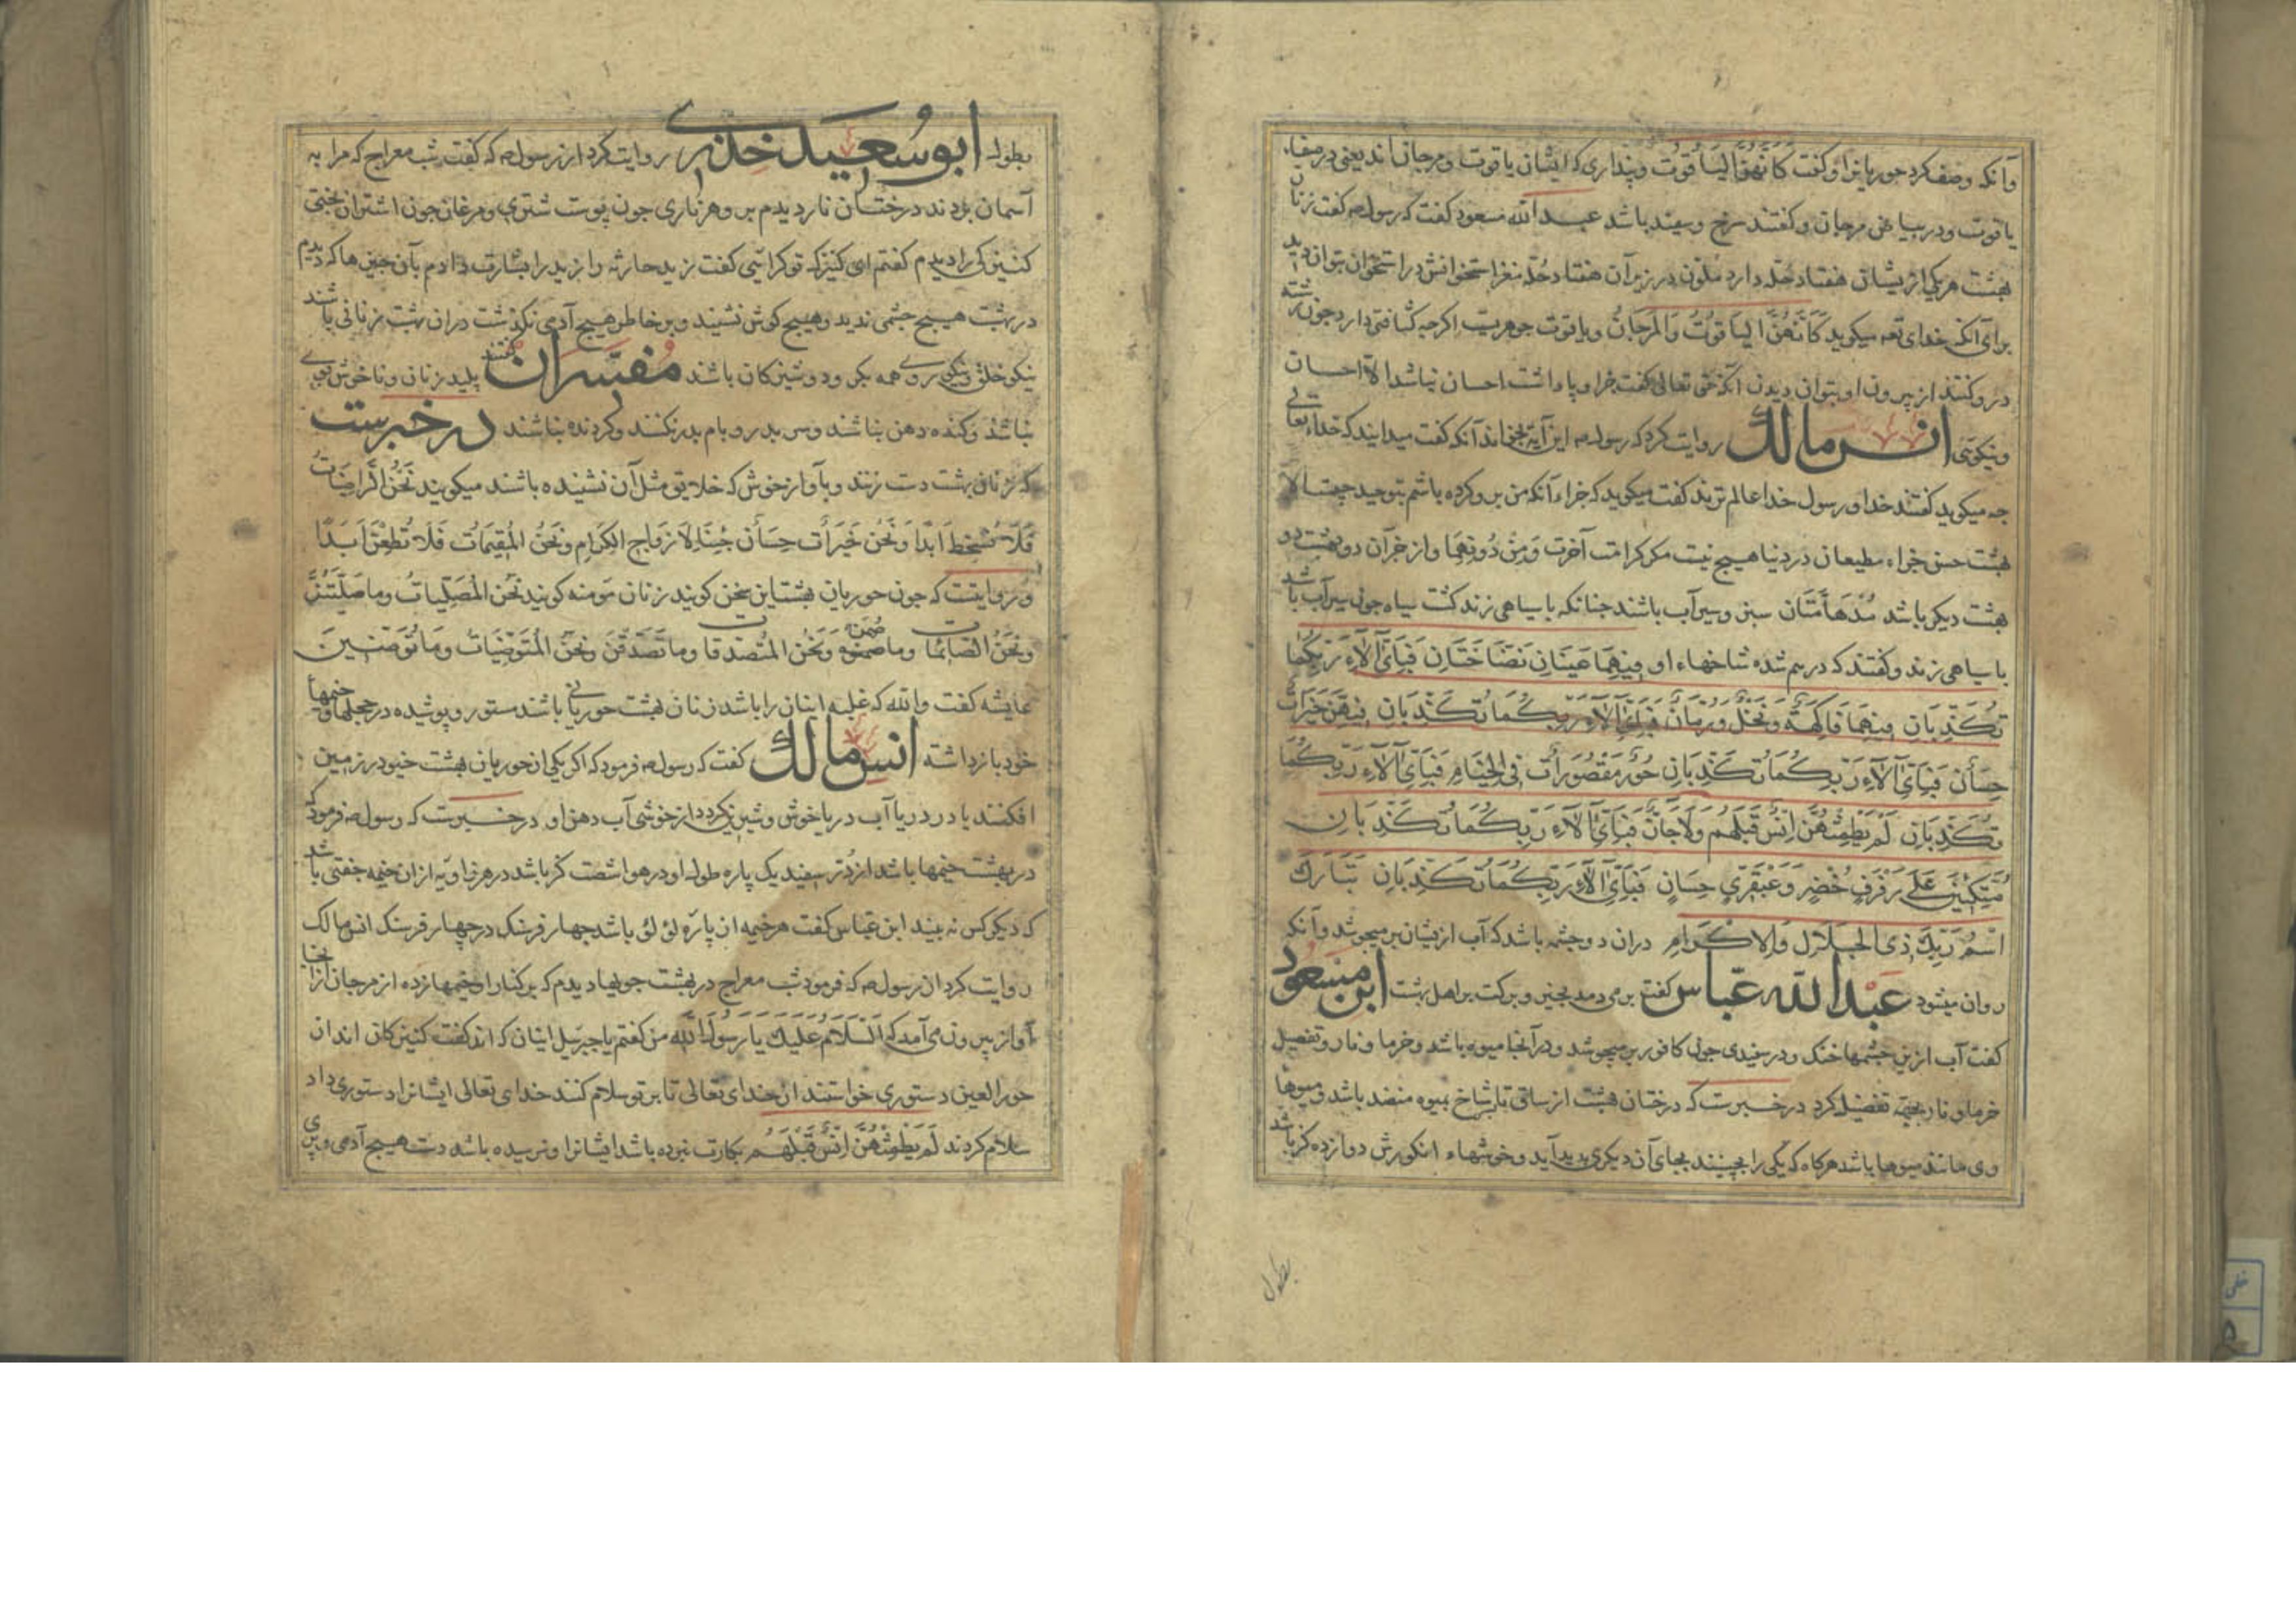 وآنکه وصف کرد حوریانرا و کفت کَاَنَّهُنَّ الیَاقُوتُ وپنداری که ایشان یاقوت ومرجانند یعنی در صفاء
یاقوت ودر بیاض مرجان وکفتند سرخ وسفید باشد عبدالله مسعود کفت که رسول صه کفت زنان
بهشت هریکی ازیشان هفتاد حلّه دارد ملوّن در زیر آن هفتاد حلّه مغز استخوانش در استخوان بتوان دید
برای آنکه خدای تعه میکوید کَاَنَّهُنَّ الیَاقُوتُ وَالمَرجَانُ ویاقوت جوهریست اکرجه کثافتی دارد جون رشته
دروکنند از بیرون او بتوان دیدن آنکه حق تعالی کفت جزا و پاداشت احسان نباشد الا احسان
ونیکوئی انس مالک روایت کرد که رسول صه این آیة بخواند آنکه کفت میدانید که خداء تعالی
جه میکوید کفتند خدا و رسول خدا عالم ترند کفت میکوید که جزاء آنکه من برو کرده باشم بتوحید جیست الا
بهشت حسن جزاء مطیعان در دنیا هیج نیست مکر کرامت آخرت وَمِن دُونِهِمَا واز جزآن دو بهشت دو
بهشت دیکر باشد مُدْهَامَّتَان سبز وسیرآب باشند جنانکه با سیاهی زند کشت سیاه جون سیرآب باشد
با سیاهی زند وکفتند که درهم شده شاخهاء او فِیهِمَا عَینَانِ نَضَّاخَتَانِ فَبِاَیِّ آلَاءِ رَبِّکُمَا
تُکَذِّبَانِ فِیهِمَا فَاکِهَةٌ وَنَخلٌ وَرُمَّانٌ فَبِاَیِّ آلَاءِ رَبِّکُمَا تُکَذِّبَانِ فِیهِنَّ خَیرَاتٌ
حِسَانٌ فَبِاَیِّ آلَاءِ رَبِّکُمَا تُکَذِّبَانِ حُورٌ مَقصُورَاتٌ فِی الخِیَامِ فَبِاَیِّ آلَاءِ رَبِّکُمَا
تُکَذِّبَانِ لَم یَطمِثهُنَّ اِنسٌ قَبلَهُم وَلَا جَانٌّ فَبِاَیِّ آلَاءِ رَبِّکُمَا تُکَذِّبَانِ
مُتَّکِئِینَ عَلَی رَفرَفٍ خُضرٍ وَعَبقَرِیٍّ حِسَانٍ فَبِاَیِّ آلَاءِ رَبِّکُمَا تُکَذِّبَانِ تَبَارَکَ
اسمُ رَبِّکَ ذِی الجَلَالِ وَالاِکرَامِ دران دو جشمه باشد که آب ازیشان برمیجوشد وآنکه
روان میشود عبدالله عبّاس کفت برمی دمد بخیر وبرکت بر اهل بهشت ابن مسعود
کفت آب ازین جشمها خنک ودر سفیدی جون کافور برمیجوشد ودرآنجا میوه باشد وخرما ونار وتفصیل
خرما و نار بجهة تفضیل کرد درخبرست که درختان بهشت از ساق تا بشاخ بمیوه منضد باشد ومیوها
وی مانند سبوها باشد هرکاه که یکی را بچینند بجای آن دیکری پدید آید وخوشهاء انکورش دوازده کز باشد
بطول
بطول ابوسعید خذری روایت کرد از رسول صه که کفت شب معراج که مرا به
آسمان بردند درختان نار دیدم بر وهر ناری جون پوست شتری ومرغان جون اشتران بختی
کنیزکی را دیدم کفتم ای کنیزک تو کرائی کفت زید حارثه را زید را بشارت دادم بآن جیزها که دیدم
در بهشت هیج جشمی ندید وهیج کوش نشنید وبر خاطر هیج آدمی نکذشت دران بهشت زنانی باشند
نیکو خلق ونیکو روی همه بکر ودوشیزکان باشند مفسّران کفتند پلید زنان وناخوش بوی
نباشند وکنده دهن نباشند وسر بدر و بام بدر نکنند وکردنده نباشند درخبرست
که زنان بهشت دست زنند وبآواز خوش که خلایق مثل آن نشنیده باشند میکویند نَحنُ الرَّاضِیَاتُ
فَلَا نَسخَط اَبَدًا وَنَحنُ خَیرَاتٌ حِسَان جِئنَا لِاَزوَاج الکِرَام وَنَحنُ المُقِیمَاتُ فَلَا نُظعَنُ اَبَدًا
ودر روایتست که جون حوریان بهشت این سخن کویند زنان مؤمنه کویند نَحنُ المُصَلِّیاتُ وما صَلَّیتُنَّ
وَنَحنُ الصَّائِمَات وما صُمتُنَّ وَنَحنُ المُتَصَدِّقَات وما تَصَدَّقتُنَّ وَنَحنُ المُتَوَضِّیَاتُ وَمَا تَوَضَّئتُنَّ
عایشه کفت والله که غلبه اینان را باشد زنان بهشت حوریانی باشند مستور وپوشیده در حجلها وخیمها
خود بازداشته انس مالک کفت که رسول صه فرمود که اکر یکی از حوریان بهشت خیو در زمین
افکند یا در دریا آب دریا خوش وشیرین کردد از خوشی آب دهن او درخبرست که رسول صه فرمود که
در بهشت خیمها باشد از دُرّ سفید یک پاره طول او در هوا شصت کز باشد در هر زاویه از ان خیمه جفتی باشد
که دیکر کس نه بیند ابن عبّاس کفت هر خیمه ان پارّه لؤلؤ باشد جهار فرسنک در چهار فرسنک انس مالک
روایت کرد از رسول صه که فرمود شب معراج در بهشت جویها دیدم که بر کنار او خیمها زده از مرجان ازانجا
آواز بیرون می آمد که اَلسَّلَامُ عَلَیکَ یَا رَسُولَ اللّٰه من کفتم یا جبرئیل اینان که اند کفت کنیزکان اند ان
حورالعین دستوری خواستند از خدای تعالی تا بر تو سلام کنند خدای تعالی ایشانرا دستوری داد
سلام کردند لَم یَطمِثهُنَّ اِنسٌ قَبلَهُم بکارت نبرده باشد ایشانرا ونرسیده باشد دست هیج آدمی وپری